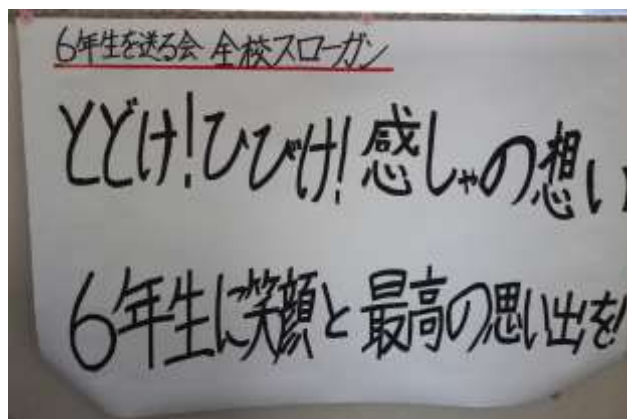 6年生を送る会 全校スローガン
とどけ!ひびけ!感しゃの想い
6年生に笑顔と最高の思い出を!